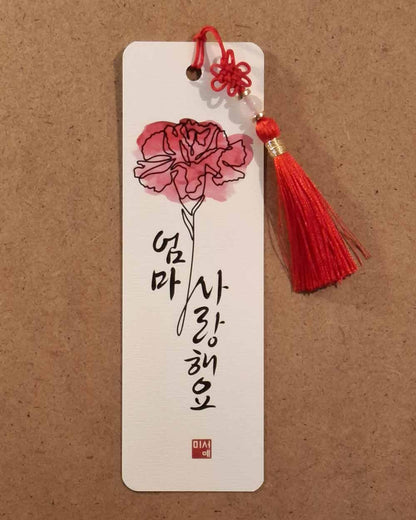 엄마
사랑해요
미서예